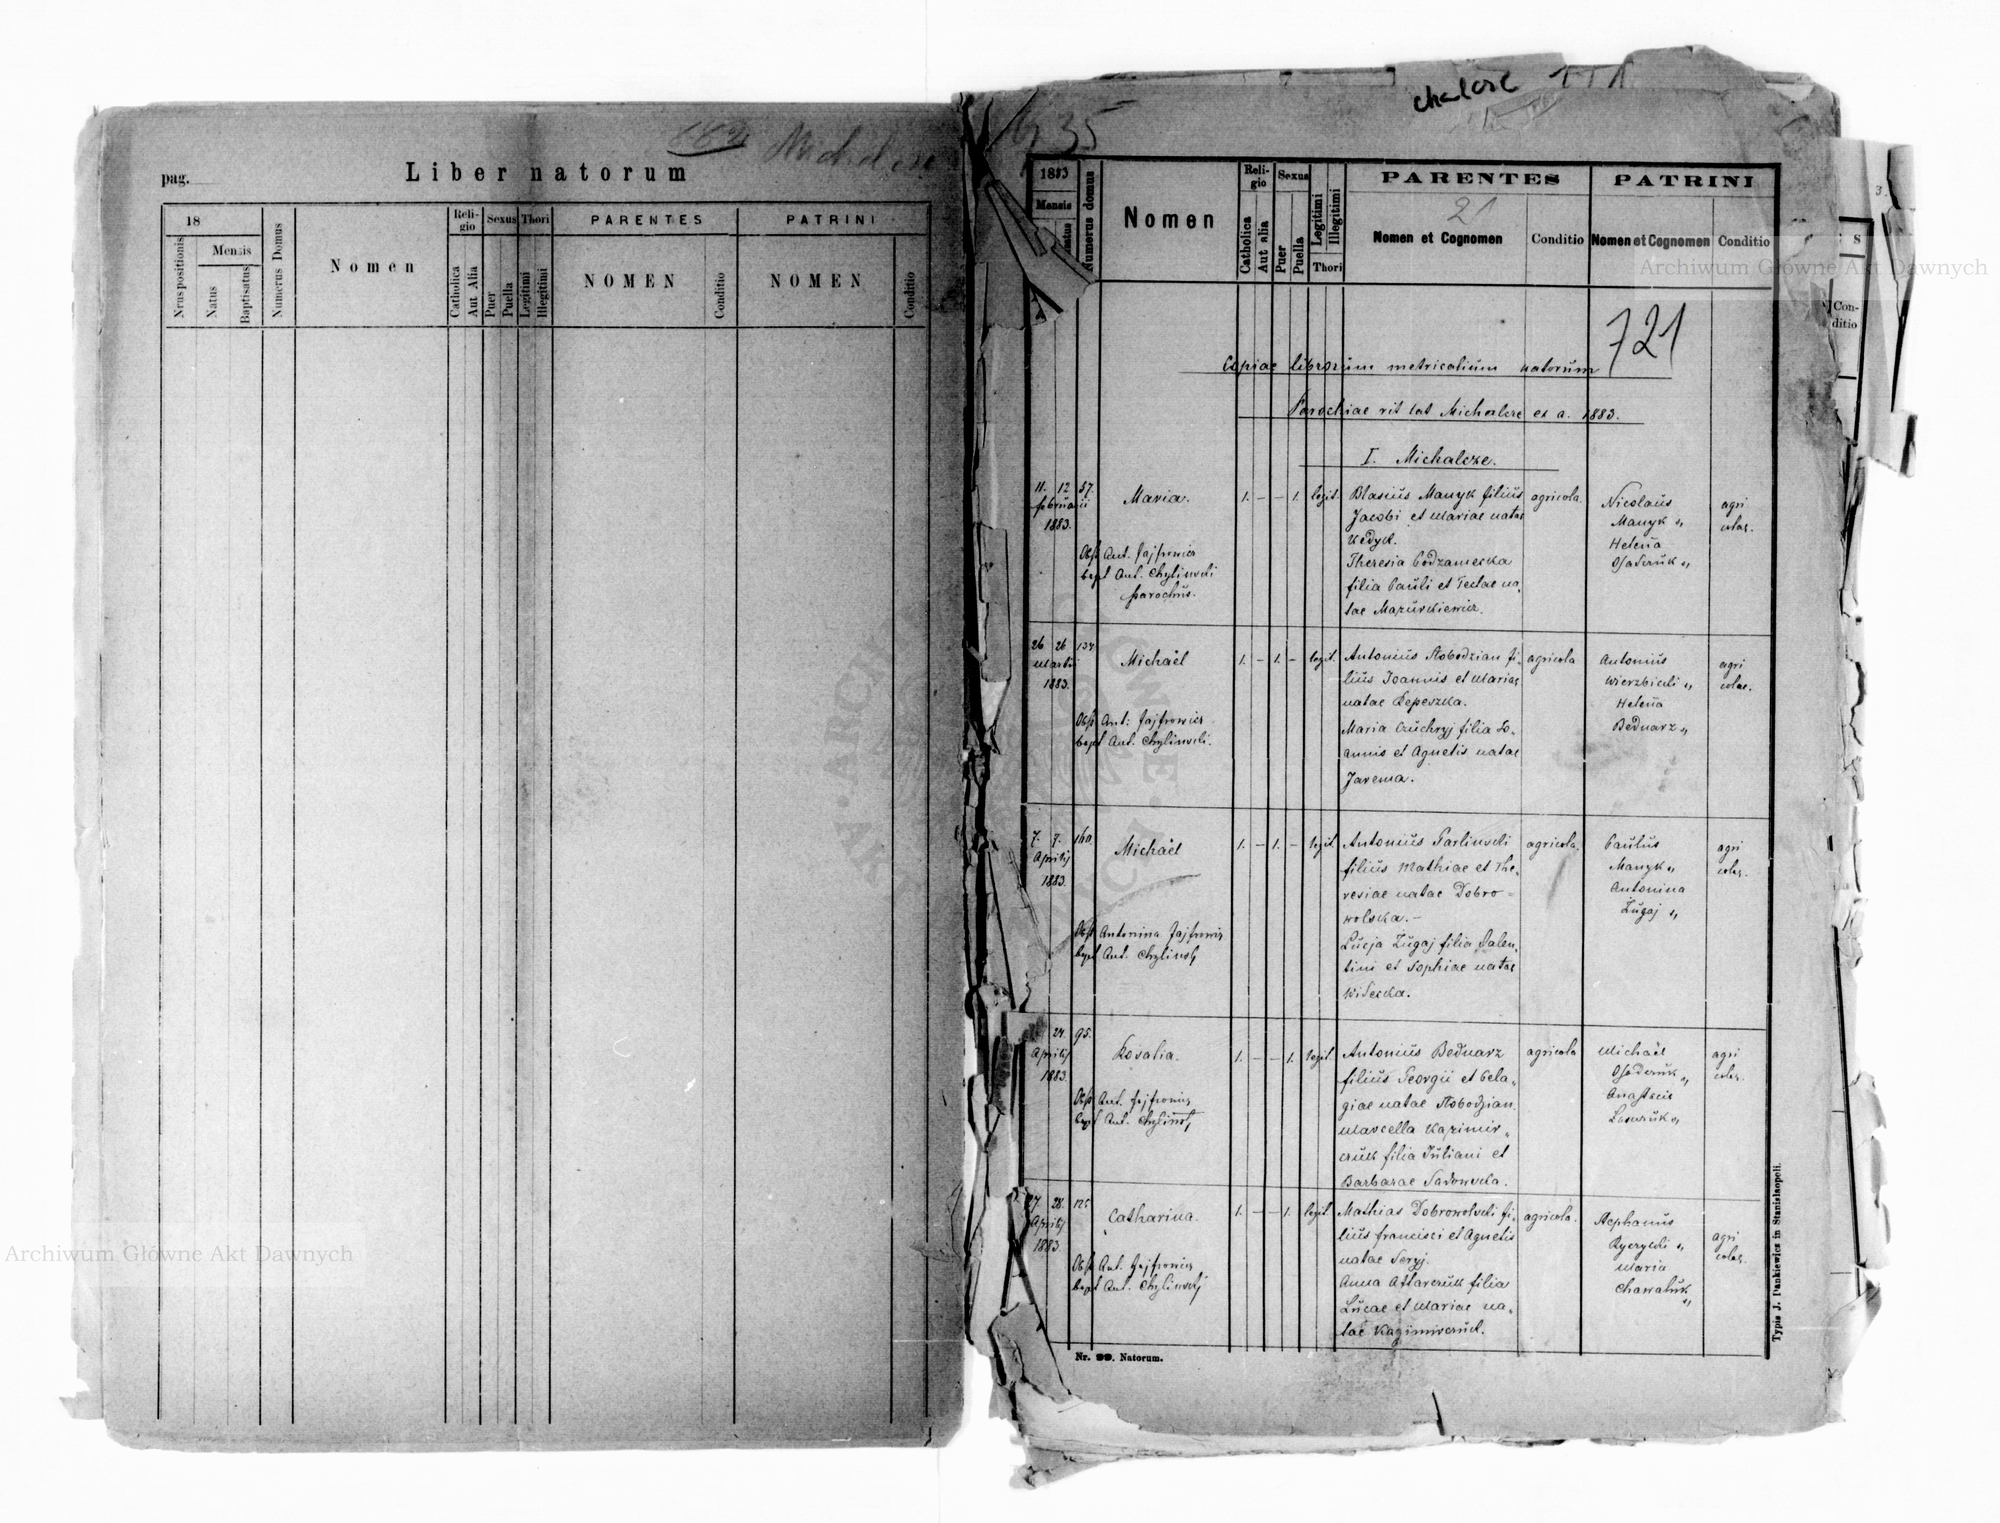 pag.
Liber natorum
18
Nrus positionis
Mensis
Natus
Baptisatus
Numerus Domus
Nomen
Religio
Catholica
Aut Alia
Sexus
Puer
Puella
Thori
Legitimi
Illegitimi
PARENTES
NOMEN
Conditio
PATRINI
NOMEN
Conditio
35
1883
Mensis
Numerus domus
Nomen
Religio
Catholica
Aut alia
Sexus
Puer
Puella
Legitimi
Illegitimi
Thori
PARENTES
21
Nomen et Cognomen
Conditio
PATRINI
Nomen et Cognomen
Conditio
Archiwum Główne Akt Dawnych
721
Copiae librorum metricalium natorum
Parochiae rit lat Michalcze ex a. 1883.
I. Michalcze.
11. 12 37.
februarii
1883.
Maria.
1. – – 1. legit.
Blasius Manyk filius
Jacobi et Mariae natae
Kedyk.
Theresia Podzamecka
filia Pauli et Teclae na„
tae Mazurkiewicz.
agricola.
Nicolaus
Manyk „
Helena
Osadczuk „
agri
colae.
Obst Ant. Fajfrowicz
bapt Ant. Chylinski
parochus.
26 26 134
Martii
1883.
Michaël
1. – 1. – legit.
Antonius Slobodzian fi„
lius Joannis et Mariae
natae Repeszka.
Maria Czuchryj filia Jo„
annis et Agnetis natae
Jarema.
agricola
Antonius
Wierzbicki „
Helena
Bednarz „
agri
colae.
Obst Ant. Fajfrowicz
bapt Ant. Chylinski.
7. 7. 160.
Aprilis
1883.
Michaël
1. – 1. – legit
Antonius Parlinski
filius Mathiae et The„
resiae natae Dobro=
wolska.–
Lucja Zugaj filia Valen„
tini et Sophiae natae
Witecka.
agricola.
Paulus
Manyk „
Antonina
Zugaj „
agri
colae.
Obst Antonina Fajfrowicz
bapt Ant. Chylinski
24 95.
Aprilis
1883.
Rosalia.
1. – – 1. legit
Antonius Bednarz
filius Georgii et Pela„
giae natae Slobodzian.
Marcella Kazimir„
czuk filia Juliani et
Barbarae Sadowska.
agricola
Michaël
Osadczuk „
Anastasia
agri
colae.
Obst Ant. Fajfrowicz
bapt Ant. Chylinski
27 28. 125
Aprilis
1883.
Catharina.
1. – – 1. legit
Mathias Dobrowolski fi„
lius Francisci et Agnetis
natae Seryj.
Anna Attarczuk filia
Lucae et Mariae na„
tae Kazimirczuk.
agricola.
Stephanus
Ryczylski „
Maria
Chawaluk „
agri
colae.
Obst Ant. Fajfrowicz
bapt Ant. Chylinski
Nr. 99. Natorum.
Typis J. Pankiewicz in Stanislaopoli.
Conditio
Archiwum Główne Akt Dawnych